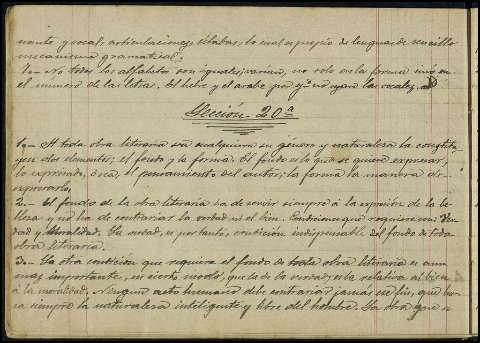 nante y vocal, articulaciones, sílabas, lo cual es propio de lenguas de sencillo
mecanismo gramatical.
7.- No todos los alfabetos son iguales; varían, no solo en la forma sino en
el número de las letras. El hebreo y el árabe por ej. no usan las vocales.
Lección - 20ª
1.- A toda obra literaria sea cualquiera su género y naturaleza la constitu-
yen dos elementos; el fondo y la forma. El fondo es lo que se quiere expresar,
lo expresado, ó sea, el pensamiento del autor; la forma la manera de
expresarlo.
2.- El fondo de la obra literaria ha de servir siempre á la expresión de la be-
lleza y no ha de contrariar la verdad ni el bien. Condiciones que requiere son: Ver-
dad y Moralidad. La verdad, es por tanto, condición indispensable del fondo de toda
obra literaria.
3.- La otra condición que requiere el fondo de toda obra literaria es aun
mas importante, en cierto modo, que la de la verdad; es la relativa al bien
á la moralidad. Ningun acto humano debe contrariar jamás ese fin, que bus-
ca siempre la naturaleza inteligente y libre del hombre. La obra que